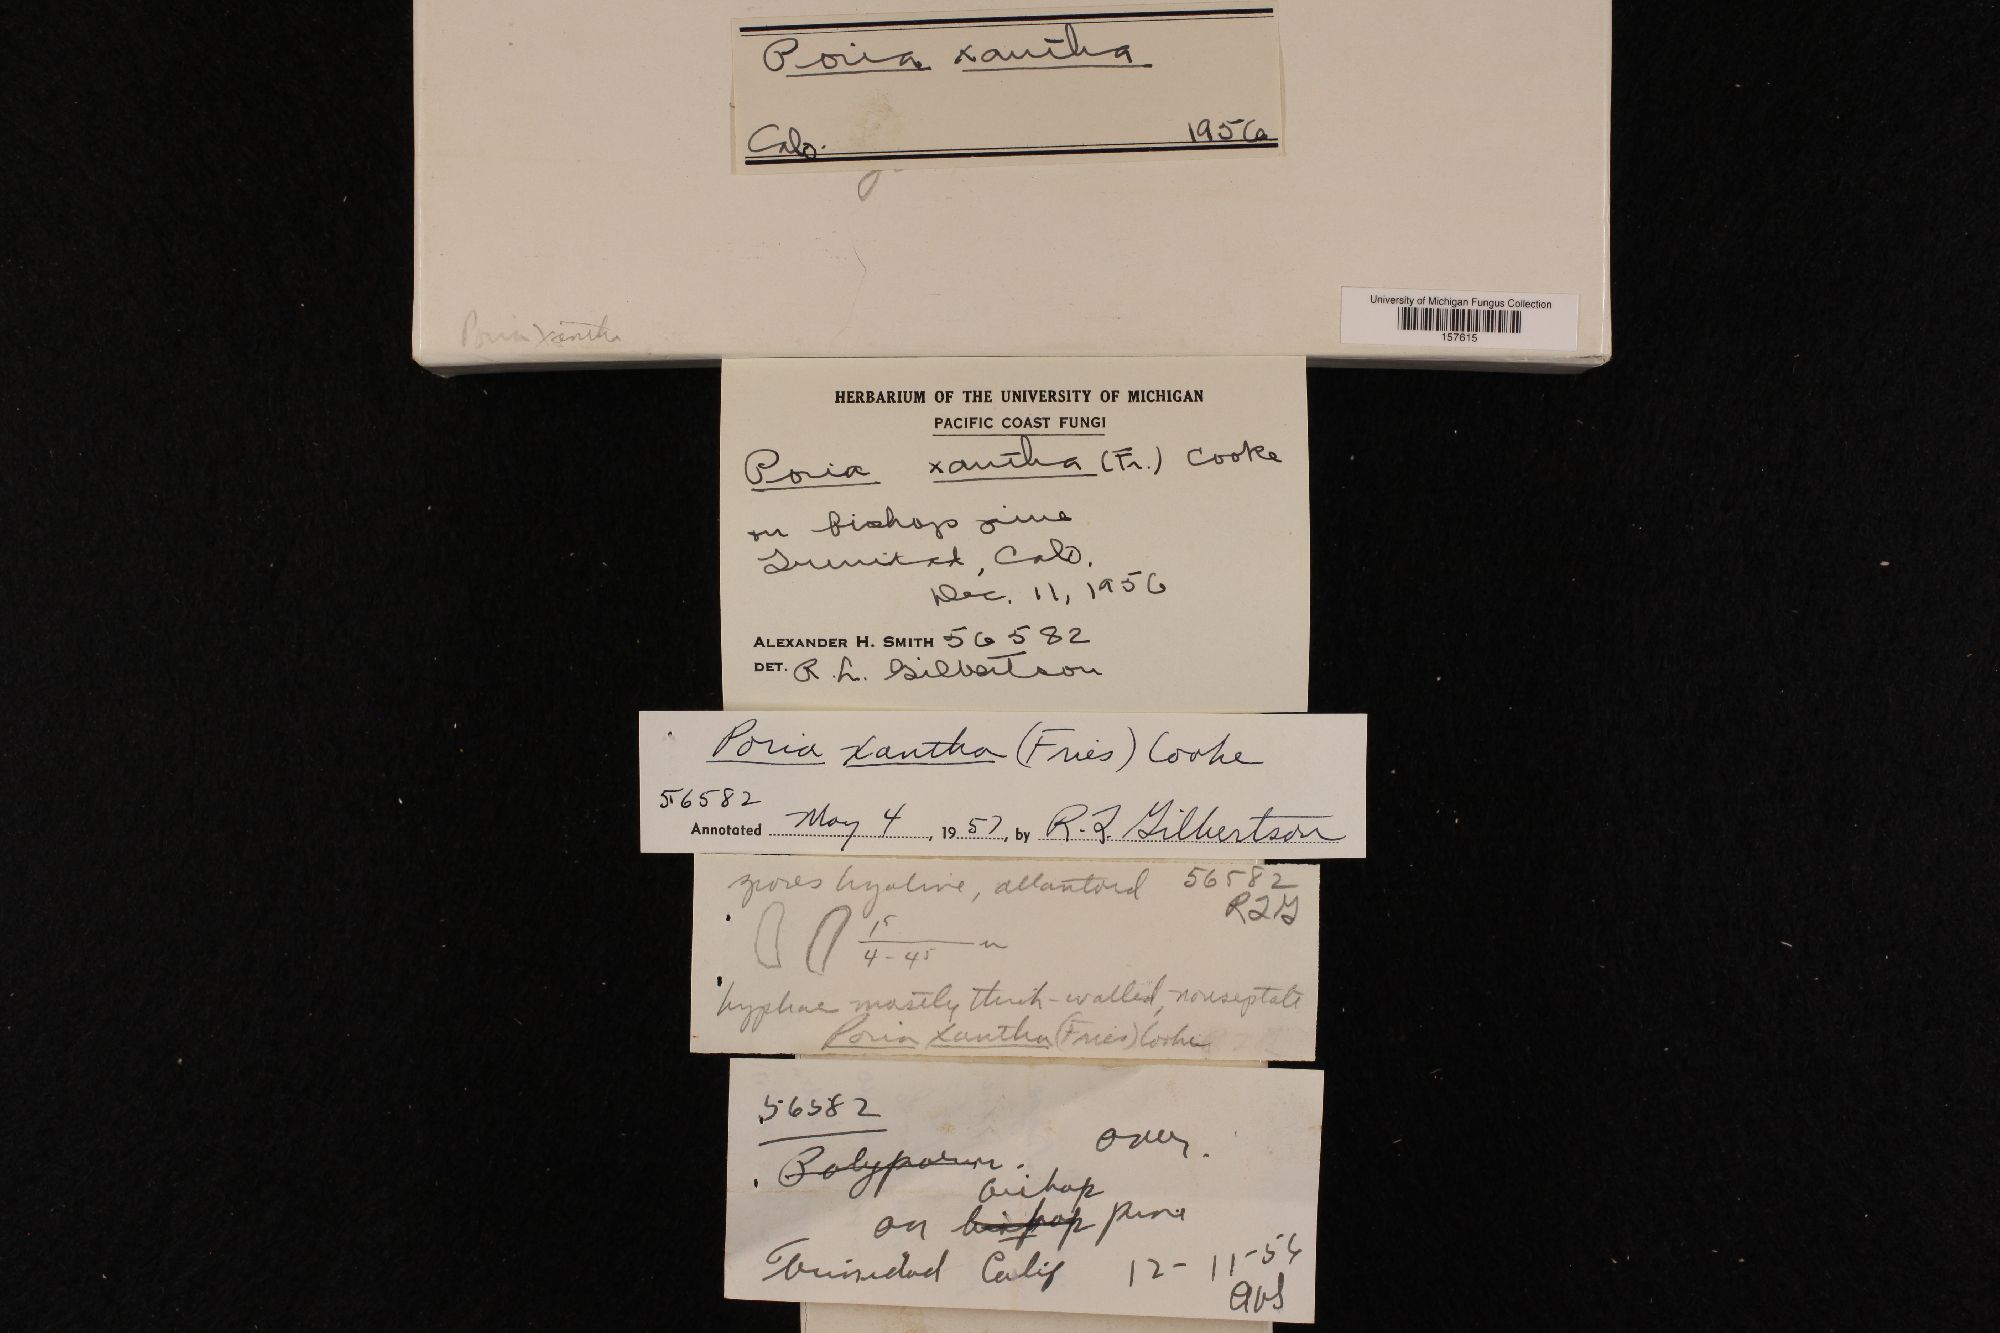 Poria xantha
Calif. 1956
Poria xantha
University of Michigan Fungus Collection
157615
HERBARIUM OF THE UNIVERSITY OF MICHIGAN
PACIFIC COAST FUNGI
Poria xantha (Fr.) Cooke
on bishop pine
Trinidad, Calif.
Dec. 11, 1956
ALEXANDER H. SMITH 56582
DET. R. L. Gilbertson
Poria xantha (Fries) Cooke
56582
Annotated May 4, 1957, by R. L. Gilbertson
spores hyaline, allantoid 56582
RLG
15
4-45 u
hyphae mostly thick-walled, nonseptate
Poria xantha (Fries) Cooke
56582
over.
Polyporus.
bishop
on pine
Trinidad Calif 12-11-56
AHS